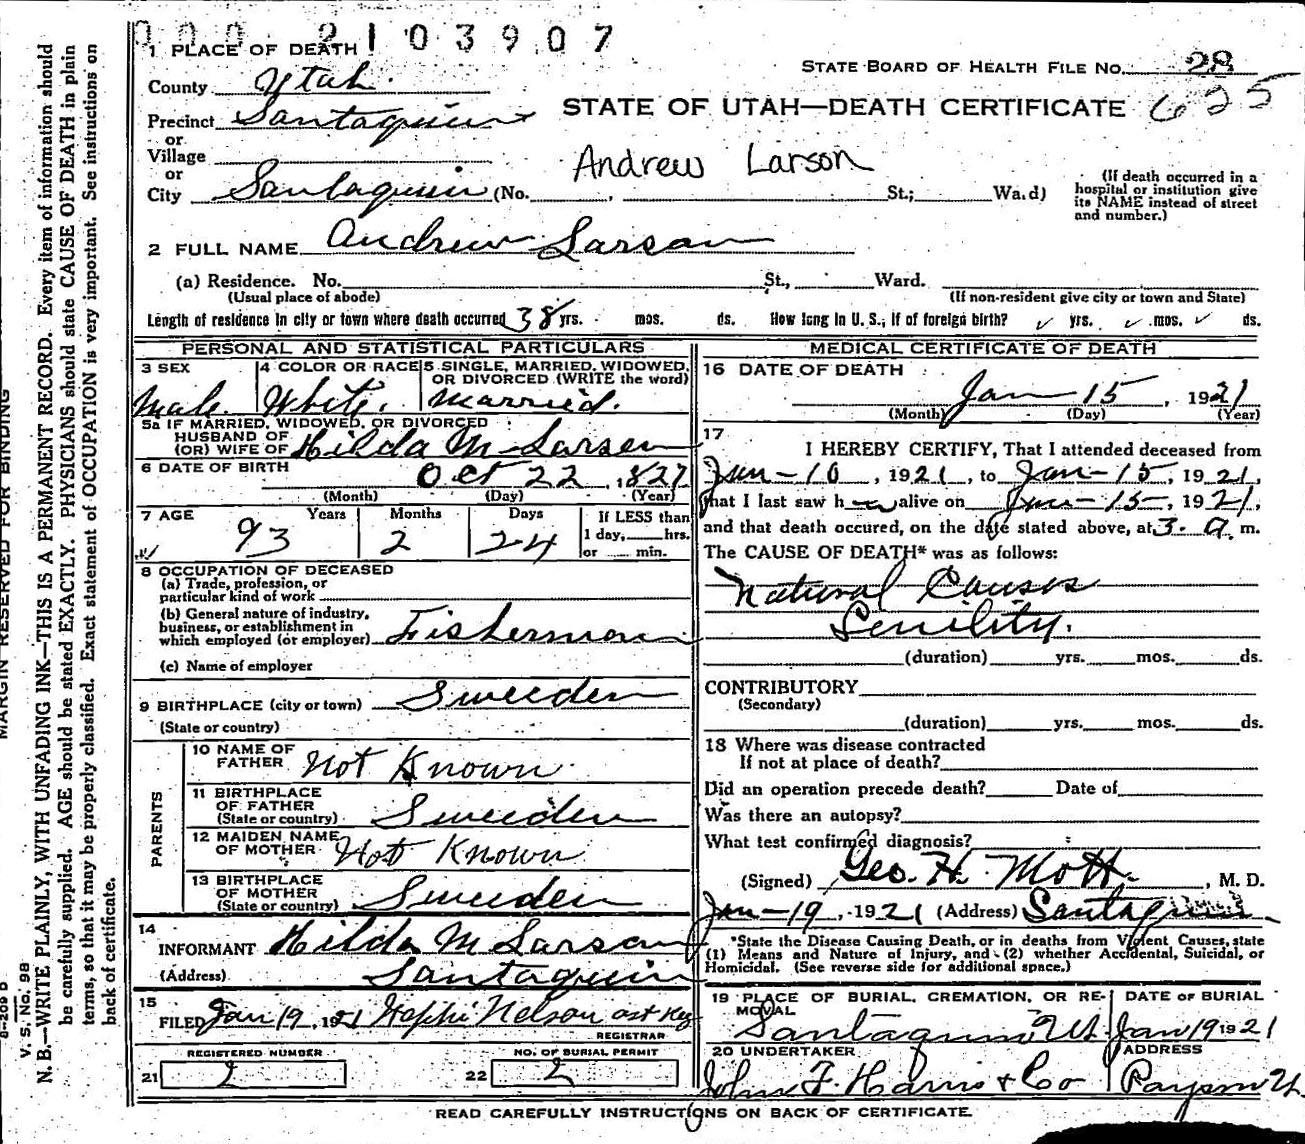 000 2103907
1 PLACE OF DEATH
STATE BOARD OF HEALTH FILE NO. 28
County Utah
STATE OF UTAH—DEATH CERTIFICATE 625
Precinct Santaquin
or
Village
or
Andrew Larson
City Santaquin (No. , St.; Ward)
(If death occurred in a hospital or institution give its NAME instead of street and number.)
2 FULL NAME Andrew Larson
(a) Residence. No. St., Ward.
(Usual place of abode) (If non-resident give city or town and State)
Length of residence in city or town where death occurred 38 yrs. mos. ds. How long in U. S., if of foreign birth? yrs. mos. ds.
PERSONAL AND STATISTICAL PARTICULARS
3 SEX Male
4 COLOR OR RACE White.
5 SINGLE, MARRIED, WIDOWED, OR DIVORCED (WRITE the word) Married.
5a IF MARRIED, WIDOWED, OR DIVORCED
HUSBAND OF
(OR) WIFE OF Hilda M Larsen
6 DATE OF BIRTH Oct 22, 1827
(Month) (Day) (Year)
7 AGE Years Months Days If LESS than
93 2 24 1 day, hrs.
or min.
8 OCCUPATION OF DECEASED
(a) Trade, profession, or
particular kind of work
(b) General nature of industry,
business, or establishment in
which employed (or employer) Fisherman
(c) Name of employer
9 BIRTHPLACE (city or town) Sweeden
(State or country)
PARENTS
10 NAME OF FATHER Not Known
11 BIRTHPLACE OF FATHER
(State or country) Sweeden
12 MAIDEN NAME OF MOTHER Not Known
13 BIRTHPLACE OF MOTHER
(State or country) Sweeden
14
INFORMANT Hilda M Larson
(Address) Santaquin
15
FILED Jan 19, 1921 Nephi Nelson ast Reg
REGISTRAR
REGISTERED NUMBER NO. OF BURIAL PERMIT
21 2 22 2
MEDICAL CERTIFICATE OF DEATH
16 DATE OF DEATH
Jan 15, 1921
(Month) (Day) (Year)
17
I HEREBY CERTIFY, That I attended deceased from
Jan-10, 1921, to Jan-15, 1921,
that I last saw h alive on Jan-15, 1921,
and that death occured, on the date stated above, at 3. a. m.
The CAUSE OF DEATH* was as follows:
Natural Causes
Senility.
(duration) yrs. mos. ds.
CONTRIBUTORY
(Secondary)
(duration) yrs. mos. ds.
18 Where was disease contracted
If not at place of death?
Did an operation precede death? Date of
Was there an autopsy?
What test confirmed diagnosis?
(Signed) Geo. H. Mott, M. D.
Jan-19, 1921 (Address) Santaquin
*State the Disease Causing Death, or in deaths from Violent Causes, state
(1) Means and Nature of Injury, and (2) whether Accidental, Suicidal, or
Homicidal. (See reverse side for additional space.)
19 PLACE OF BURIAL, CREMATION, OR REMOVAL Santaquin Ut.
DATE OF BURIAL Jan 19 1921
20 UNDERTAKER John F. Harris & Co
ADDRESS Payson U.
READ CAREFULLY INSTRUCTIONS ON BACK OF CERTIFICATE.
MARGIN RESERVED FOR BINDING
V. S. No. 98
N. B.—WRITE PLAINLY, WITH UNFADING INK—THIS IS A PERMANENT RECORD. Every item of information should
be carefully supplied. AGE should be stated EXACTLY. PHYSICIANS should state CAUSE OF DEATH in plain
terms, so that it may be properly classified. Exact statement of OCCUPATION is very important. See instructions on
back of certificate.